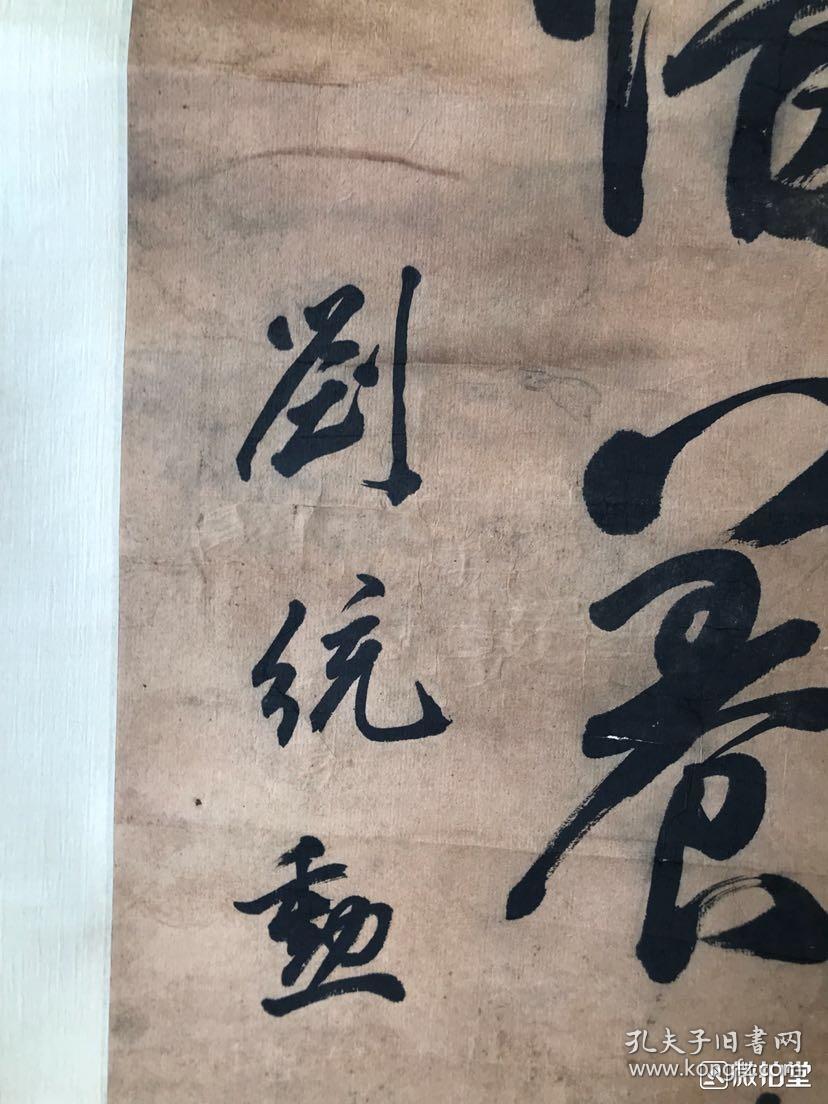 養
劉統勳
孔夫子旧书网
www.kongfz.com
微拍堂